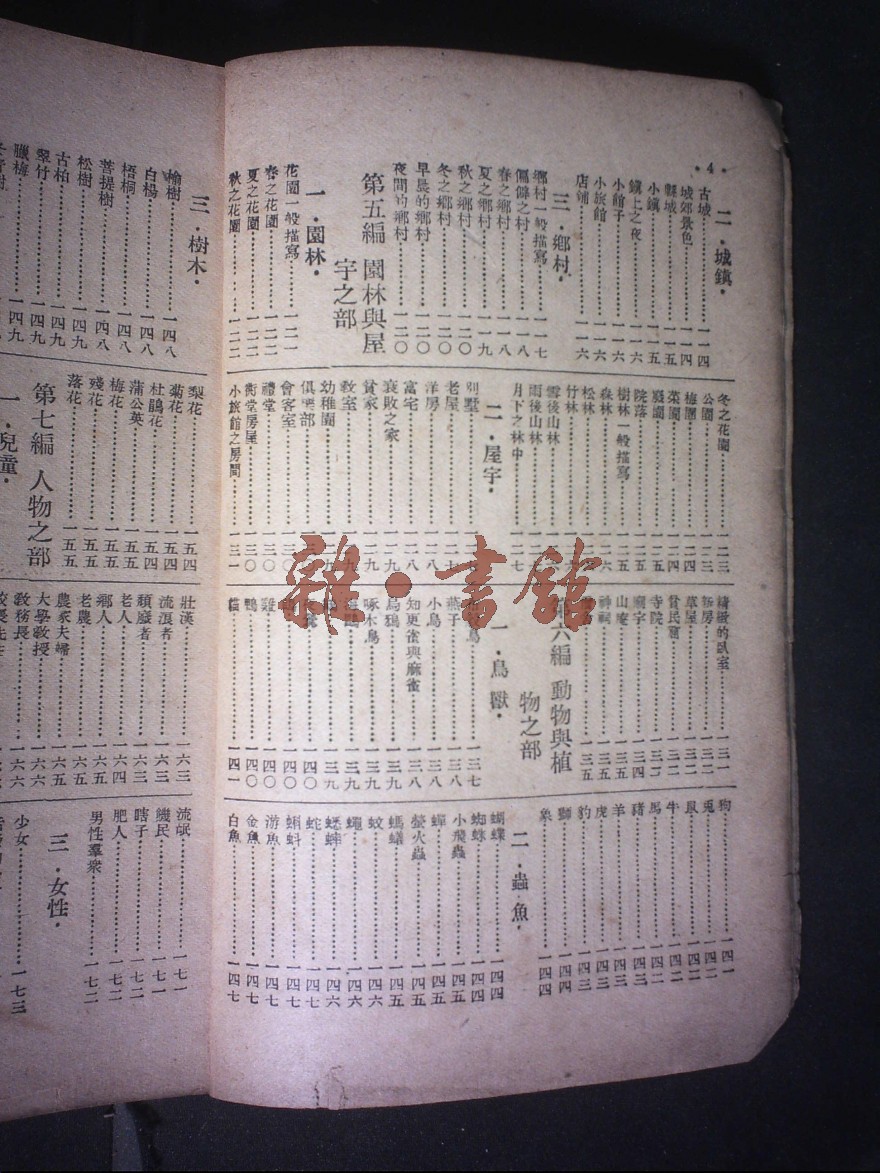 ·4·
二．城鎮．
古城……一一四
城郊景色……一一四
縣城……一一五
小鎮……一一五
鎮上之夜……一一六
小館子……一一六
小旅館……一一六
店鋪……一一六
三．鄉村．
鄉村一般描寫……一一七
偏僻之村……一一八
春之鄉村……一一八
夏之鄉村……一一九
秋之鄉村……一二〇
冬之鄉村……一二〇
早晨的鄉村……一二〇
夜間的鄉村……一二〇
第五編 園林與屋
宇之部
一．園林．
花園一般描寫……一二一
春之花園……一二二
夏之花園……一二二
秋之花園……一二二
冬之花園……一二三
公園……一二三
梅園……一二四
菜園……一二四
廢園……一二五
院落……一二五
樹林一般描寫……一二五
森林……一二六
松林
竹林
雪後山林
雨後山林……一二七
月下之林中……一二七
二．屋宇．
別墅
老屋……一二七
洋房……一二八
富宅……一二八
衰敗之家……一二九
貧家……一二九
教室……一二九
幼稚園
俱樂部
會客室……一三〇
禮堂……一三〇
衖堂房屋……一三〇
小旅館之房間……一三一
精緻的臥室……一三一
新房……一三一
草屋……一三二
貧民窟……一三二
寺院……一三二
廟宇……一三四
山庵……一三五
神祠……一三五
第六編 動物與植
物之部
一．鳥獸．
燕子……一三八
小鳥……一三八
知更雀與麻雀……一三八
烏鴉……一三九
啄木鳥……一三九
雞……一四〇
鴨……一四〇
貓……一四一
狗……一四一
兎……一四二
鼠……一四二
牛……一四二
馬……一四二
豬……一四三
羊……一四三
虎……一四三
豹……一四三
獅……一四四
象……一四四
二．蟲魚．
蝴蝶……一四四
蜘蛛……一四四
小飛蟲……一四五
蟬……一四五
螢火蟲……一四五
螞蟻……一四五
蚊……一四六
蠅……一四六
蟋蟀……一四六
蛇……一四七
蝌蚪……一四七
游魚……一四七
金魚……一四七
白魚……一四七
三．樹木．
榆樹……一四八
白楊……一四八
梧桐……一四八
菩提樹……一四八
松樹……一四九
古柏……一四九
翠竹……一四九
臘梅……一四九
梨花……一五四
菊花……一五四
杜鵑花……一五四
蒲公英……一五五
梅花……一五五
殘花……一五五
落花……一五五
第七編 人物之部
一．兒童．
壯漢……一六三
流浪者……一六三
頹廢者……一六三
老人……一六四
鄉人……一六五
老農……一六五
農家夫婦……一六五
大學教授……一六六
教務長……一六六
流氓……一七一
饑民……一七一
瞎子……一七二
肥人……一七二
男性羣衆……一七二
三．女性．
少女……一七三
雜·書館